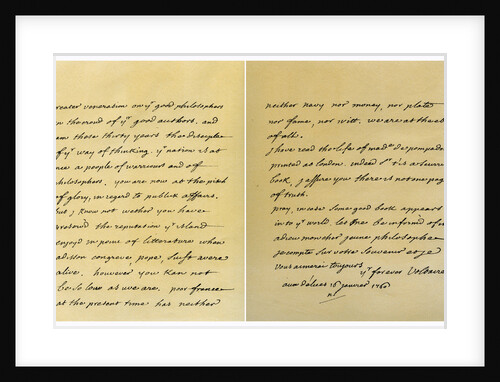 reater veneration on yr good philosophers
in the croud of yr good authors. and
am these thirty years the disciple
of yr way of thinking. yr nation is at
once a people of warriours and of
philosophers. you are now at the pitch
of glory, in regard to publick affairs.
but j know not wether you have
preserved the reputation yr island
enjoy'd in point of litterature when
addison congreve, pope, swift were
alive. however you kan not
be so low as we are. poor france
at the present time has neither
neither navy nor money, nor plate
nor fame, nor witt. we are at the
of all.
j have read the life of madme de pompadour
printed at london. indeed sr t'is a scurvy
book, j assure you there is not one page
of truth.
pray, in case some good book appears
in to yr world. let me be informed of it
adieu mon cher jeune philosophe
je compte sur votre souvenir et je
vous aimerai toujours
yr forever Voltaire
aux délices 16 janvier 1760